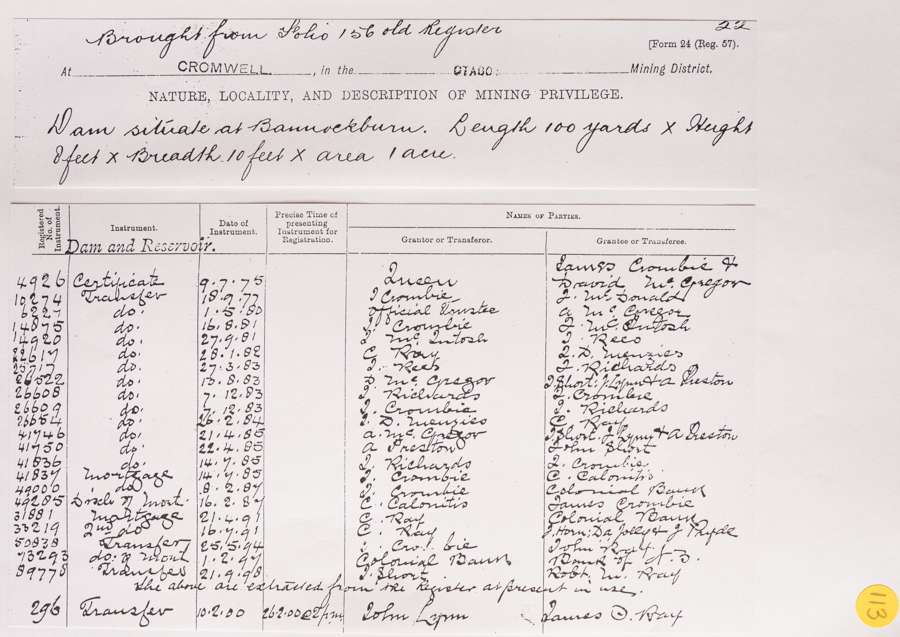 Brought from Folio 156 old Register
22
[Form 24 (Reg. 57).
At CROMWELL. , in the OTAGO Mining District.
NATURE, LOCALITY, AND DESCRIPTION OF MINING PRIVILEGE.
Dam situate at Bannockburn. Length 100 yards x Height
8 feet x Breadth 10 feet x area 1 acre.
Registered No. of Instrument. Instrument. Date of Instrument. Precise Time of presenting Instrument for Registration. NAMES OF PARTIES.
Grantor or Transferor. Grantee or Transferee.
Dam and Reservoir.
James Crombie &
4926 Certificate 9.7.75 Queen David McGregor
10274 Transfer 18.9.77 J Crombie J. McDonald
6227 do. 1.5.80 Official Trustee A McGregor
14875 do. 16.8.81 J. Crombie J. McIntosh
14920 do. 27.9.81 J. McIntosh J. Rees
22617 do. 28.1.82 C. Ray J. D. Menzies
do. 27.3.83 J. Rees J. Richards
26522 do. 13.8.83 D. McGregor J Short, J Lynn & A Preston
26608 do. 7.12.83 J. Richards J. Crombie
26609 do. 7.12.83 J. Crombie J. Richards
26654 do. 26.2.84 J. D. Menzies C. Ray
41746 do. 21.4.85 A. McGregor J Short J Lynn & A Preston
41750 do. 22.4.85 A Preston John Short
41836 do. 14.7.85 J. Richards J. Crombie
41837 Mortgage 14.7.85 J. Crombie C. Calonitis
49000 do. 8.2.87 J. Crombie Colonial Bank
49285 Disch of Mort. 16.2.87 C. Calonitis James Crombie
31881 Mortgage 21.4.91 C. Ray Colonial Bank
33219 2nd do 16.7.91 C. Ray J. Horn, Da Jolly & J
50838 Transfer 25.5.94 J. Crombie John Ray
73293 do. of Mort 1.2.97 Colonial Bank Bank of N.Z.
89778 Transfer 21.9.98 J. Short Robt. M. Ray
The above are extracted from the Register at present in use.
296 Transfer 10.2.00 26.2.00 @ 2 pm John Lynn James O. Ray
113